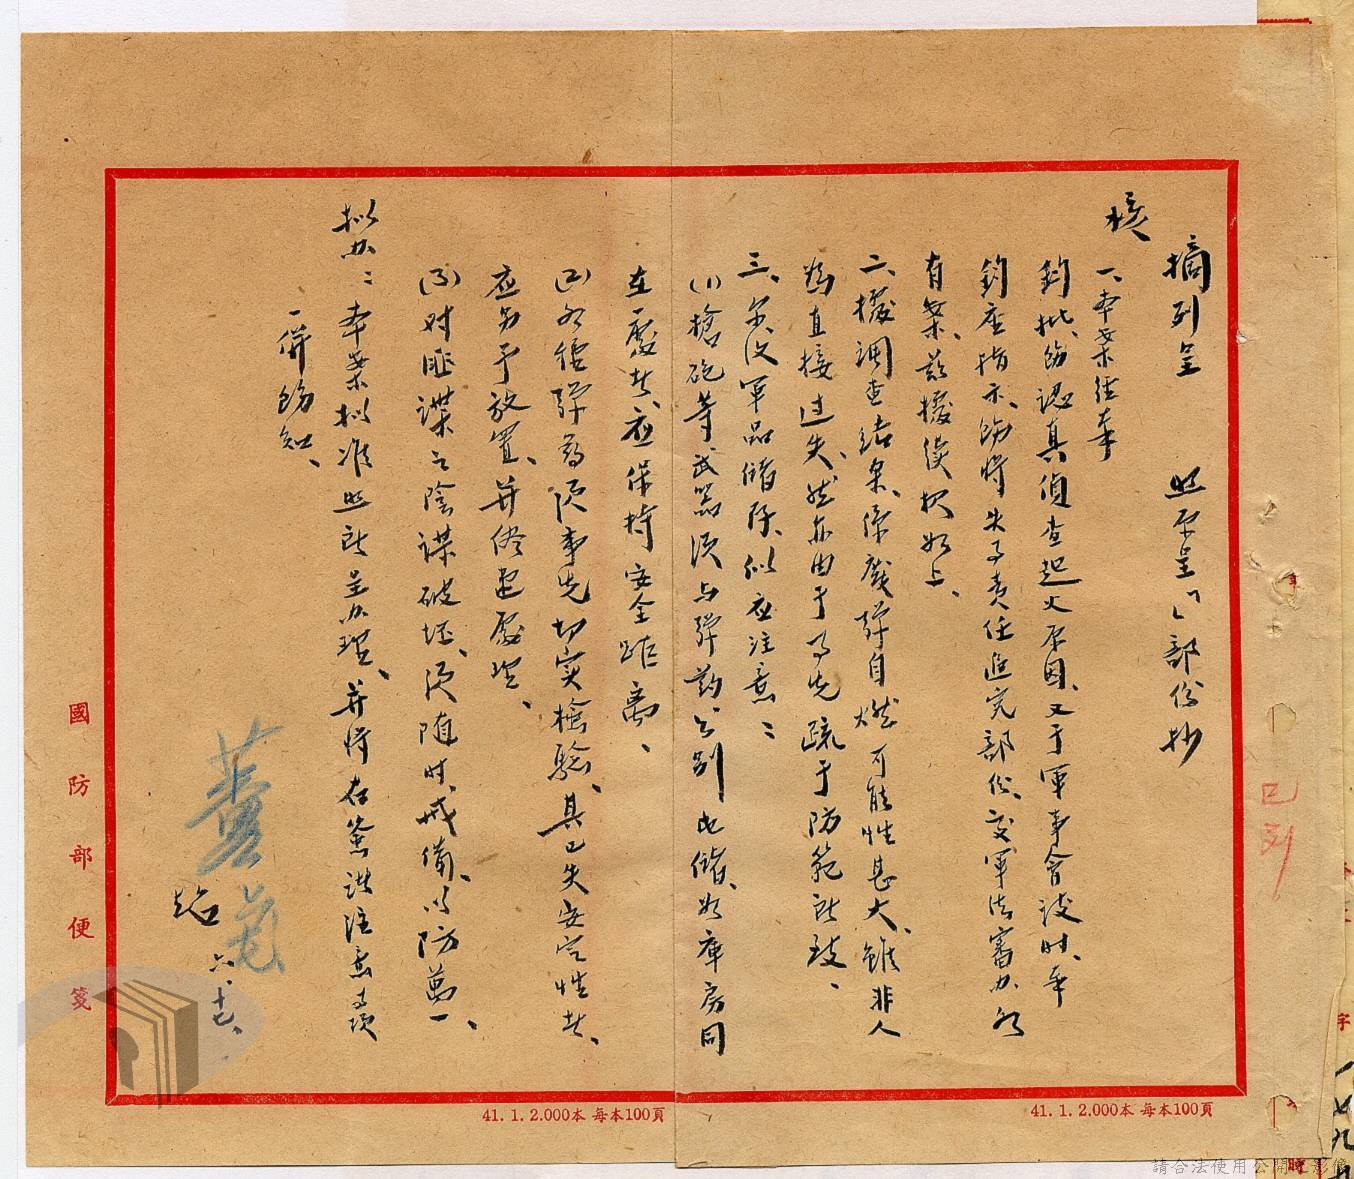 摘列呈　照原呈「」部份抄
核
一、本案經奉
鈞批、飭認真偵查起火原因、又于軍事會談時、奉
鈞座指示、飭將失事責任追究部份、交軍法審办各
有案、茲據續报如上、
二、據調查結果、係廢彈自燃可能性甚大、雖非人
為直接過失、然亦由于事先疏于防範所致、
三、尔後軍品儲存、似应注意：
(1)槍砲等武器须与彈葯、分別屯儲、如庫房同
在一處者、应保持安全距离、
(2)各種彈葯须事先切实檢驗、其已失安定性者、
应另予放置、并儘速處理、
(3)对匪諜之陰謀破坏、须随时戒備、以防萬一、
拟办：本案拟准照所呈办理、并將右簽誌注意事项
一併飭知、
六、十七、
國防部便箋
41.1.2.000本 每本100頁
41.1.2.000本 每本100頁
已列
時
請合法使用公開之影像